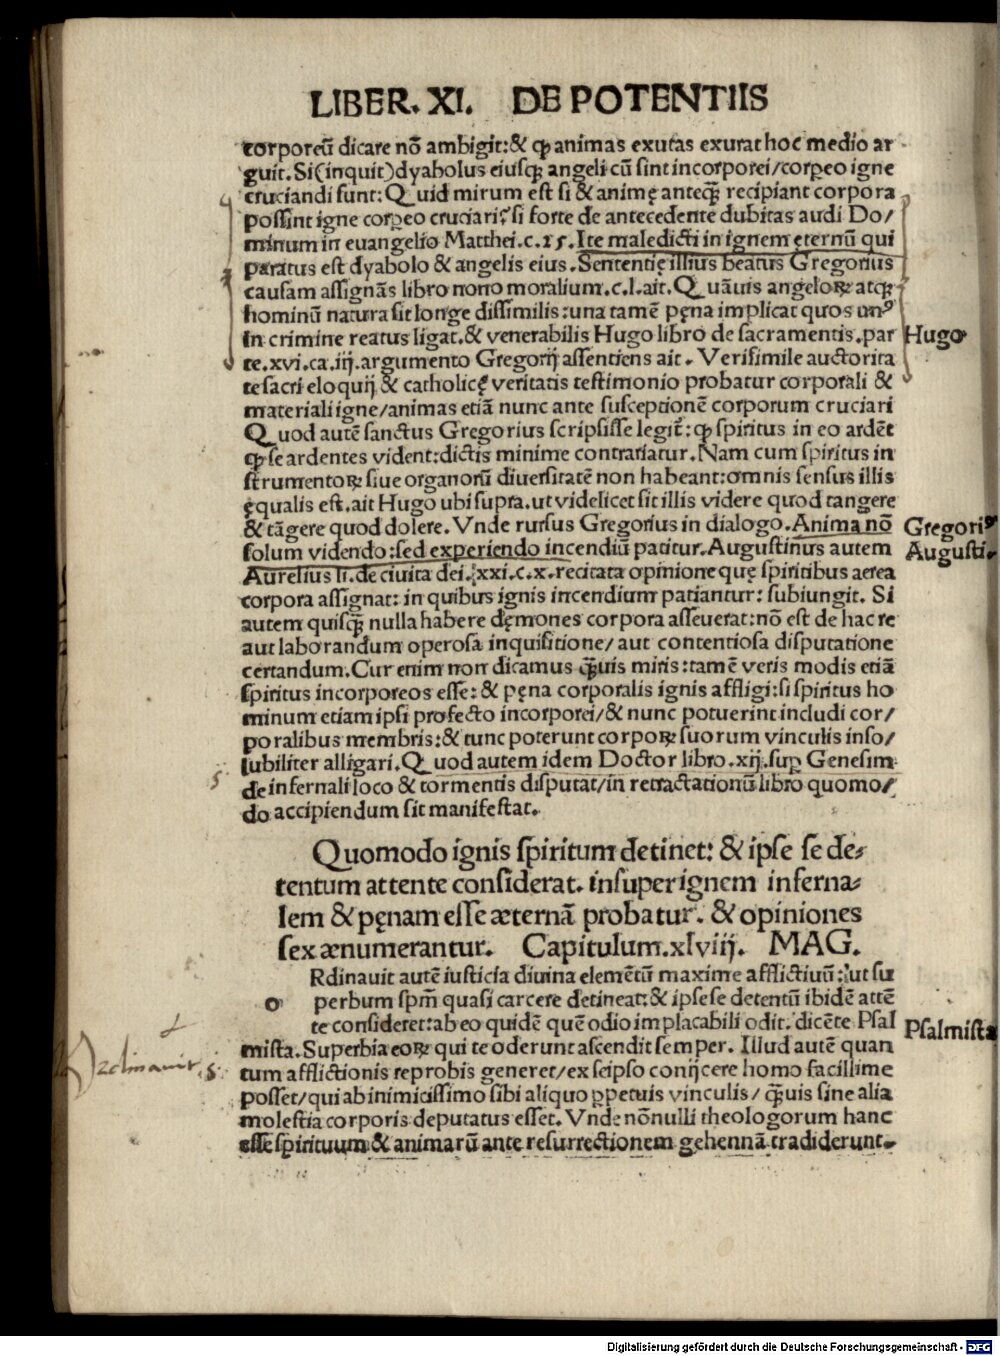 LIBER. XI. DE POTENTIIS
corporeū dicare nō ambigit: & ꝙ animas exutas exurat hoc medio ar-
guit. Si (inquit) dyabolus eiusqꝫ angeli cū sint incorporei/ corꝑeo igne
cruciandi sunt: Quid mirum est si & animę anteqꝫ̄ recipiant corpora
possint igne corꝑeo cruciari? si forte de antecedente dubitas audi Do/
minum in euangelio Matthei.c.25. Ite maledicti in ignem ęternū qui
paratus est dyabolo & angelis eius. Sententię illius beatus Gregorius
causam assignās libro nono moralium.c.l.ait. Quāuis angeloꝝ atqꝫ
hominū natura sit longe dissimilis: una tamē pęna implicat quos unꝰ
in crimine reatus ligat. & venerabilis Hugo libro de sacramentis. par
Hugo
te.xvi.ca.iij. argumento Gregorij assentiens ait. Verisimile auctorita
te sacri eloquij & catholicę veritatis testimonio probatur corporali &
materiali igne/ animas etiā nunc ante susceptionē corporum cruciari
Quod autē sanctus Gregorius scripsisse legit̄: ꝙ spiritus in eo ardēt
ꝙ se ardentes vident: dictis minime contrariatur. Nam cum spiritus in
strumentoꝝ siue organorū diuersitatē non habeant: omnis sensus illis
ęqualis est. ait Hugo ubi supra. ut videlicet sit illis videre quod tangere
& tāgere quod dolere. Vnde rursus Gregorius in dialogo. Anima nō
Gregoriꝰ
solum videndo: sed experiendo incendiū patitur. Augustinus autem
Augusti.
Aurelius li. de ciuita dei. xxi.c.x. recitata opinione quę spiritibus aerea
corpora assignat: in quibus ignis incendium patiantur: subiungit. Si
autem quisqꝫ̄ nulla habere dęmones corpora asseuerat: nō est de hac re
aut laborandum operosa inquisitione/ aut contentiosa disputatione
certandum. Cur enim non dicamus qꝫ̄uis miris: tamē veris modis etiā
spiritus incorporeos esse: & pęna corporalis ignis affligi: si spiritus ho
minum etiam ipsi profecto incorporei/ & nunc potuerint includi cor/
poralibus membris: & tunc poterunt corpoꝝ suorum vinculis inso/
lubiliter alligari. Quod autem idem Doctor libro.xij. suꝑ Genesim
de infernali loco & tormentis disputat/ in retractationū libro quomo/
do accipiendum sit manifestat.
Quomodo ignis spiritum detinet: & ipse se de-
tentum attente considerat. insuper ignem inferna-
lem & pęnam esse æternā probatur. & opiniones
sex ænumerantur. Capitulum.xlviij. MAG.
o
Rdinauit autē iusticia diuina elemētū maxime afflictiuū: ut su
perbum spm̄ quasi carcere detineat: & ipse se detentū ibidē attē
te consideret: ab eo quidē quē odio implacabili odit. dicēte Psal
Psalmista
mista. Superbia eoꝝ qui te oderunt ascendit semper. Illud autē quan
Declinauit.
tum afflictionis reprobis generet/ ex seipso conijcere homo facillime
posset/ qui ab inimicissimo sibi aliquo ꝑpetuis vinculis/ qꝫ̄uis sine alia
molestia corporis deputatus esset. Vnde nōnulli theologorum hanc
esse spirituum & animarū ante resurrectionem gehennā tradiderunt.
Digitalisierung gefördert durch die Deutsche Forschungsgemeinschaft - DFG